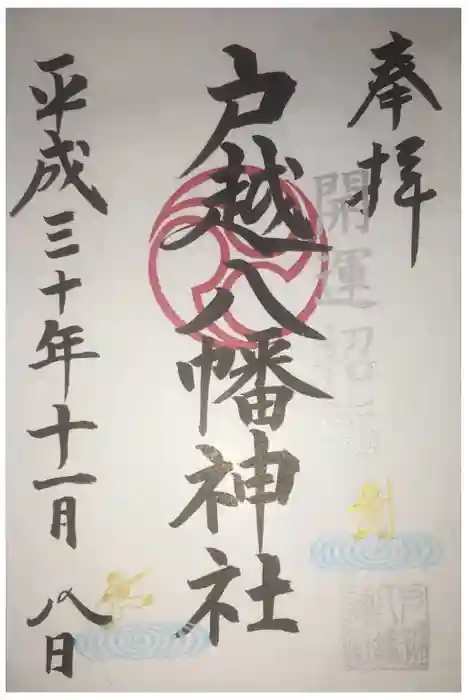 奉拝
開運招福
戸越八幡神社
平成三十年十一月八日